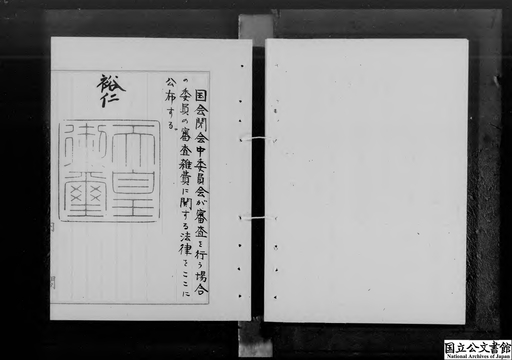 国会閉会中委員会が審査を行う場合
の委員の審査雑費に関する法律をここに
公布する。
裕仁
天皇
御璽
国立公文書館
National Archives of Japan